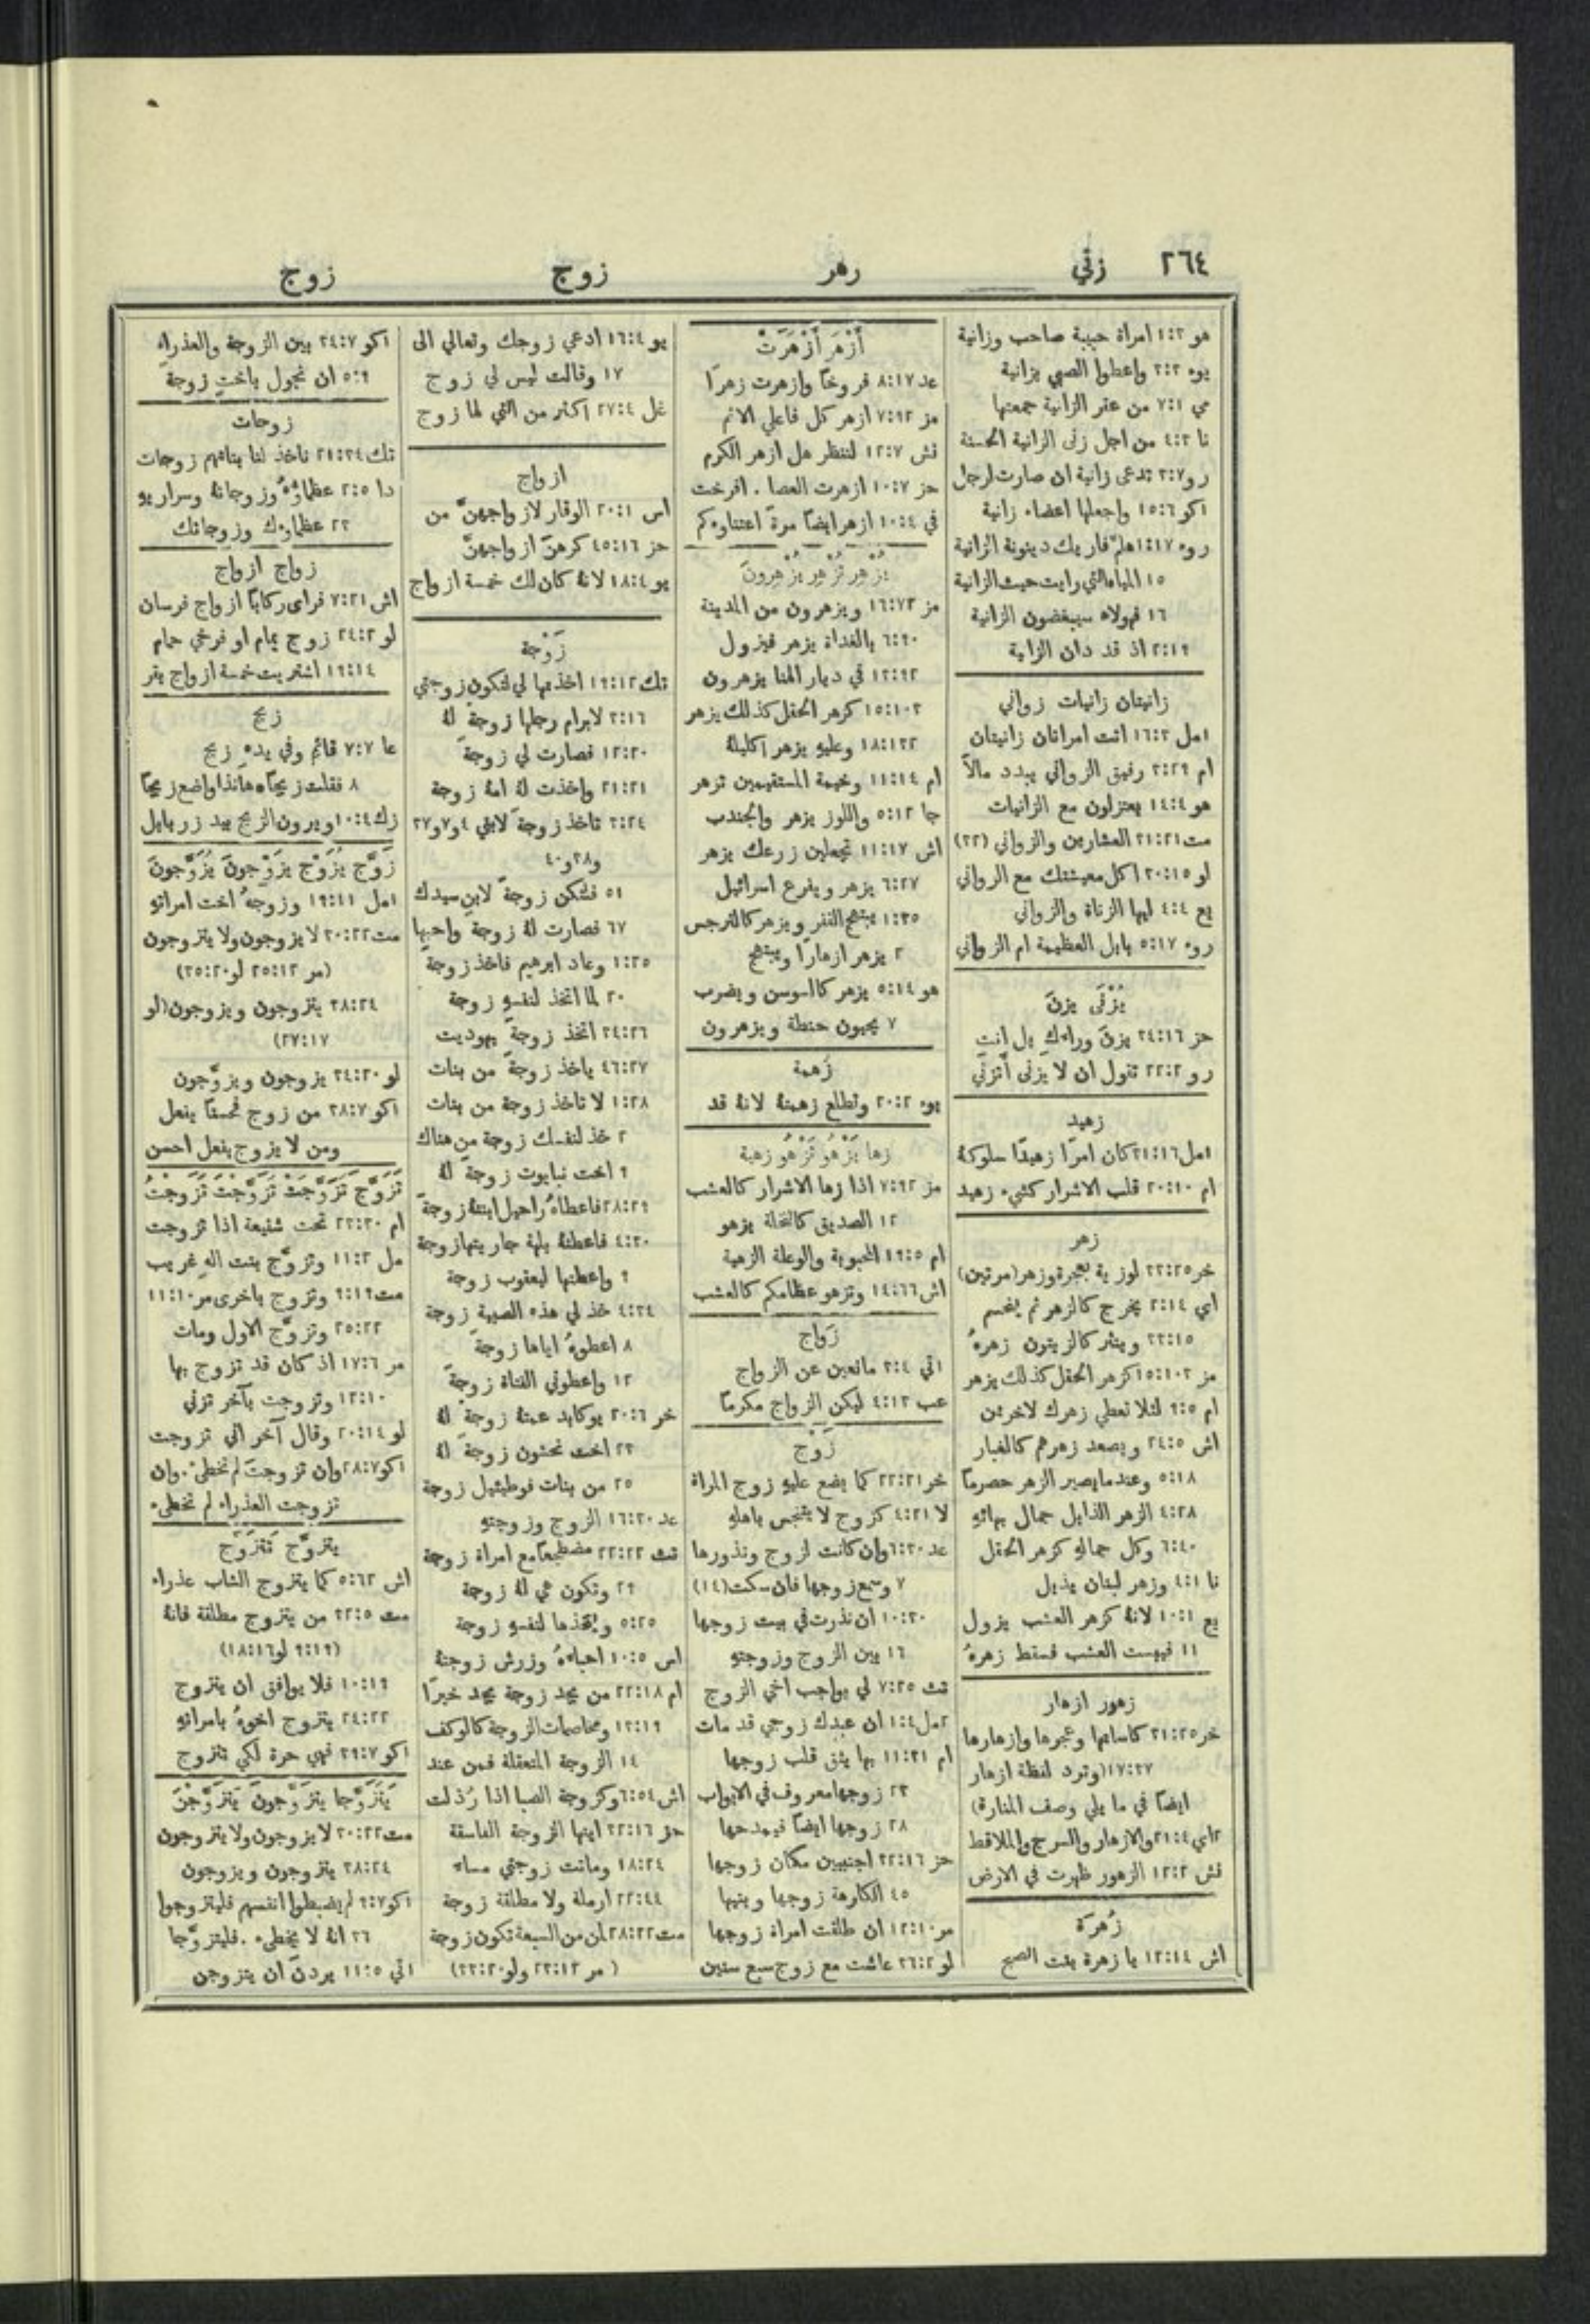 ٢٦٤ زني زهر زوج زوج
هو ٣:١ امراة حبيبة صاحب وزانية
يوء ٣:٣ واعطوا الصبي بزانية
مي ٧:١ من عقر الزانية جمعتها
نا ٤:٣ من اجل زنى الزانية الحسنة
رو ٣:٧ تدعى زانية ان صارت لرجل
١كو ١٥:٦ واجعلها اعضاء زانية
روء ١:١٧ هلمّ فاريك دينونة الزانية
١٥ المياه التي رايت حيث الزانية
١٦ فهولاء سيبغضون الزانية
٢:١٩ اذ قد دان الزانية
زانيتان زانيات زواني
١مل ١٦:٣ اتت امراتان زانيتان
ام ٣:٢٩ رفيق الزواني يبدد مالاً
هو ١٤:٤ يعتزلون مع الزانيات
مت ٣١:٢١ العشارين والزواني (٣٢)
لو ٣٠:١٥ اكل معيشتك مع الزواني
يع ٤:٤ ايها الزناة والزواني
روء ٥:١٧ بابل العظيمة ام الزواني
يُزْنَى يزنَ
حز ٣٤:١٦ يزنَ وراءكِ بل انتِ
رو ٢٢:٢ تقول ان لا يُزنى أَتزني
زهيد
١مل ٣١:١٦ كان امرًا زهيدًا سلوكهُ
ام ٢٠:١٠ قلب الاشرار كشيء زهيد
زهر
خر ٣٣:٢٥ لوزية بعجرة وزهر (مرتين)
اي ٢:١٤ يخرج كالزهر ثم ينحسم
٣٣:١٥ وينثر كالزيتون زهرهُ
مز ١٥:١٠٣ كزهر الحقل كذلك يزهر
ام ٩:٥ لئلا تعطي زهرك لاخرين
اش ٢٤:٥ ويصعد زهرهم كالغبار
٥:١٨ وعندما يصير الزهر حصرمًا
٤:٢٨ الزهر الذابل جمال بهائهِ
٦:٤٠ وكل جمالهِ كزهر الحقل
نا ٤:١ وزهر لبنان يذبل
يع ١٠:١ لانهُ كزهر العشب يزول
١١ فيبست العشب فسقط زهرهُ
زهور ازهار
خر ٣١:٢٥ كاساتها وعجرها وازهارها
١٧:٣٧ (وترد لفظة ازهار
ايضًا في ما يلي وصف المنارة)
٢اي ٢١:٤ والازهار والسرج والملاقط
نش ١٢:٢ الزهور ظهرت في الارض
زُهرَة
اش ١٢:١٤ يا زهرة بنت الصبح
أَزْهَر أَزْهَرَتْ
عد ٨:١٧ فروخًا وازهرت زهرًا
مز ٧:٩٢ ازهر كل فاعلي الاثم
نش ١٢:٧ لننظر هل ازهر الكرم
حز ١٠:٧ ازهرت العصا . افرخت
في ١٠:٤ ازهر ايضًا مرةً اعتناوءكم
يُزْهِر تُزْهِر يُزْهِرونَ
مز ١٦:٧٢ ويزهرون من المدينة
٦:٩٠ بالغداة يزهر فيزول
١٣:٩٢ في ديار الهنا يزهرون
١٥:١٠٣ كزهر الحقل كذلك يزهر
١٨:١٣٢ وعليهِ يزهر اكليلهُ
ام ١١:١٤ وخيمة المستقيمين تزهر
جا ٥:١٢ واللوز يزهر والجندب
اش ١١:١٧ تجعلين زرعك يزهر
٦:٢٧ يزهر ويفرع اسرائيل
١:٣٥ يبتهج القفر ويزهر كالنرجس
٢ يزهر ازهارًا ويبتهج
هو ٥:١٤ يزهر كالسوسن ويضرب
٧ يحيون حنطة ويزهرون
زَهمة
يوء ٢٠:٢ وتطلع زهمتهُ لانهُ قد
زها يَزْهُو تَزْهُو زهية
مز ٧:٩٢ اذا زها الاشرار كالعشب
١٢ الصديق كالنخلة يزهو
ام ١٩:٥ المحبوبة والوعلة الزهية
اش ١٤:٦٦ وتزهو عظامكم كالعشب
زَواج
١تي ٣:٤ مانعين عن الزواج
عب ٤:١٣ ليكن الزواج مكرمًا
زَوْج
خر ٢٢:٢١ كما يضع عليهِ زوج المراة
لا ٤:٢١ كزوج لا يتنجس باهلهِ
عد ٦:٣٠ وان كانت لزوج ونذورها
٧ وسمع زوجها فان سكت (١٤)
١٠:٣٠ ان نذرت في بيت زوجها
١٦ بين الزوج وزوجتهِ
تث ٧:٢٥ لي بواجب اخي الزوج
٢مل ١:٤ ان عبدك زوجي قد مات
ام ١١:٣١ بها يثق قلب زوجها
٢٣ زوجها معروف في الابواب
٢٨ زوجها ايضًا فيمدحها
حز ٣٢:١٦ اجنبيين مكان زوجها
٤٥ الكارهة زوجها وبنيها
مر ١٢:١٠ ان طلقت امراة زوجها
لو ٣٦:٢ عاشت مع زوج سبع سنين
يو ١٦:٤ ادعي زوجك وتعالي الى
١٧ وقالت ليس لي زوج
غل ٢٧:٤ اكثر من التي لها زوج
ازواج
اس ٢٠:١ الوقار لازواجهنَّ من
حز ٤٥:١٦ كرهنَ ازواجهنَّ
يو ١٨:٤ لانهُ كان لك خمسة ازواج
زَوْجة
تك ١٩:١٢ اخذتها لي لتكون زوجتي
٣:١٦ لابرام رجلها زوجةً لهُ
١٢:٢٠ فصارت لي زوجةً
٢١:٢١ واخذت لهُ امهُ زوجة
٣:٢٤ تاخذ زوجةً لابني ٤ و٧ و٣٧
و٣٨ و٤٠
٥١ فلتكن زوجةً لابن سيدك
٦٧ فصارت لهُ زوجة واحبها
١:٢٥ وعاد ابرهيم فاخذ زوجةً
٢٠ لما اتخذ لنفسهِ زوجة
٣٤:٢٦ اتخذ زوجةً يهوديت
٤٦:٢٧ ياخذ زوجةً من بنات
١:٢٨ لا تاخذ زوجة من بنات
٢ خذ لنفسك زوجة من هناك
٩ اخت نبايوت زوجةً لهُ
٢٨:٢٩ فاعطاهُ راحيل ابنتهُ زوجةً
٤:٣٠ فاعطتهُ بلهة جاريتها زوجة
٩ واعطتها ليعقوب زوجة
٤:٣٤ خذ لي هذه الصبية زوجة
٨ اعطوهُ اياها زوجة
١٢ واعطوني الفتاة زوجةً
خر ٢٠:٦ يوكابد عمتهُ زوجةً لهُ
٢٣ اخت نحشون زوجةً لهُ
٢٥ من بنات فوطيئيل زوجة
عد ١٦:٣٠ الزوج وزوجتهِ
تث ٢٢:٢٢ مضطجعًا مع امراة زوجة
٢٩ وتكون هي لهُ زوجة
٥:٢٥ ويتخذها لنفسهِ زوجة
اس ١٠:٥ احباءهُ وزرش زوجتهُ
ام ٢٢:١٨ من يجد زوجة يجد خيرًا
١٣:١٩ ومخاصمات الزوجة كالوكف
١٤ الزوجة المتعقلة فمن عند
اش ٦:٥٤ وكزوجة الصبا اذا رُذلت
حز ٣٢:١٦ ايتها الزوجة الفاسقة
١٨:٢٤ وماتت زوجتي مساء
٢٢:٤٤ ارملة ولا مطلقة زوجة
مت ٢٨:٢٢ لمن من السبعة تكون زوجة
(مر ٢٣:١٢ ولو ٣٣:٢٠)
١كو ٣٤:٧ بين الزوجة والعذراء
٥:٩ ان نجول باختٍ زوجةً
زوجات
تك ٢١:٣٤ ناخذ لنا بناتهم زوجات
دا ٢:٥ عظماؤهُ وزوجاتهُ وسراريهِ
٢٣ عظماوءك وزوجاتك
زواج ازواج
اش ٧:٢١ فراى ركابًا ازواج فرسان
لو ٢٤:٢ زوج يمام او فرخي حمام
١٩:١٤ اشتريت خمسة ازواج بقر
زيج
عا ٧:٧ قائم وفي يدهِ زيج
٨ فقلت زيجًا هانذا واضع زيجًا
زك ١٠:٤ ويرون الزيج بيد زربابل
زَوَّج يُزَوِّج يزَوِّجونَ يُزَوَّجونَ
١مل ١٩:١١ وزوجهُ اخت امراتهِ
مت ٣٠:٢٢ لا يزوجون ولا يتزوجون
(مر ٢٥:١٢ لو ٣٥:٢٠)
٣٨:٢٤ يتزوجون ويزوجون (لو
٢٧:١٧)
لو ٣٤:٢٠ يزوجون ويزوَّجون
١كو ٣٨:٧ من زوج فحسنًا يفعل
ومن لا يزوج يفعل احسن
تَزَوَّجَ تَزَوَّجَتْ تَزَوَّجْتَ تَزَوَّجْتُ
ام ٢٣:٣٠ تحت شنيعة اذا تزوجت
مل ١١:٢ وتزوَّج بنت اله غريب
مت ٩:١٩ وتزوج باخرى مر ١١:١٠
٢٥:٢٢ وتزوَّج الاول ومات
مر ١٧:٦ اذ كان قد تزوج بها
١٢:١٠ وتزوجت بآخر تزني
لو ٢٠:١٤ وقال آخر اني تزوجت
١كو ٢٨:٧ وان تزوجتَ لم تخطئ . وان
تزوجت العذراء لم تخطيء
يتزوَّج تَتَزوَّج
اش ٥:٦٢ كما يتزوج الشاب عذراء
مت ٣٢:٥ من يتزوج مطلقة فانهُ
(٩:١٩ لو ١٨:١٦)
١٠:١٩ فلا يوافق ان يتزوج
٢٤:٢٢ يتزوج اخوهُ بامراتهِ
١كو ٣٩:٧ فهي حرة لكي تتزوج
يَتَزَوَّجا يتزَوَّجونَ يَتَزَوَّجْنَ
مت ٣٠:٢٢ لا يزوجون ولا يتزوجون
٣٨:٢٤ يتزوجون ويزوجون
١كو ٩:٧ لم يضبطوا انفسهم فليتزوجوا
٣٦ انهُ لا يخطيء . فليتزوَّجا
١تي ١١:٥ يردنَ ان يتزوجن